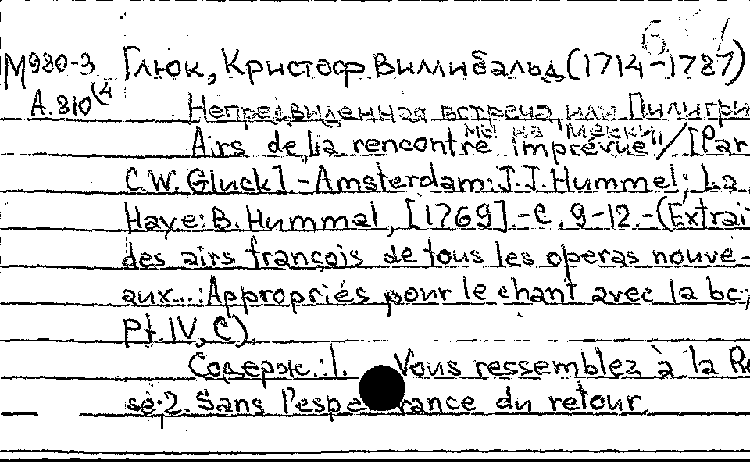 М980-3 Глюк, Кристоф Виллибальд (1714-1787)
А.310(4 Непредвиденная встреча, или Пилигри
мы из "Мекки"
Airs de la rencontre imprévue"/ [Par
C.W. Gluck] - Amsterdam: J.J. Hummel; La
Haye: B. Hummal, [1769]. - C. 9-12. - (Extrai
des airs françois de tous les operas nouve-
aux...: Appropriés pour le chant avec la bc;
Pt. IV, C)
Содерж.: 1. Vous ressemblez à la Ro
se. 2. Sans l'esperance du retour